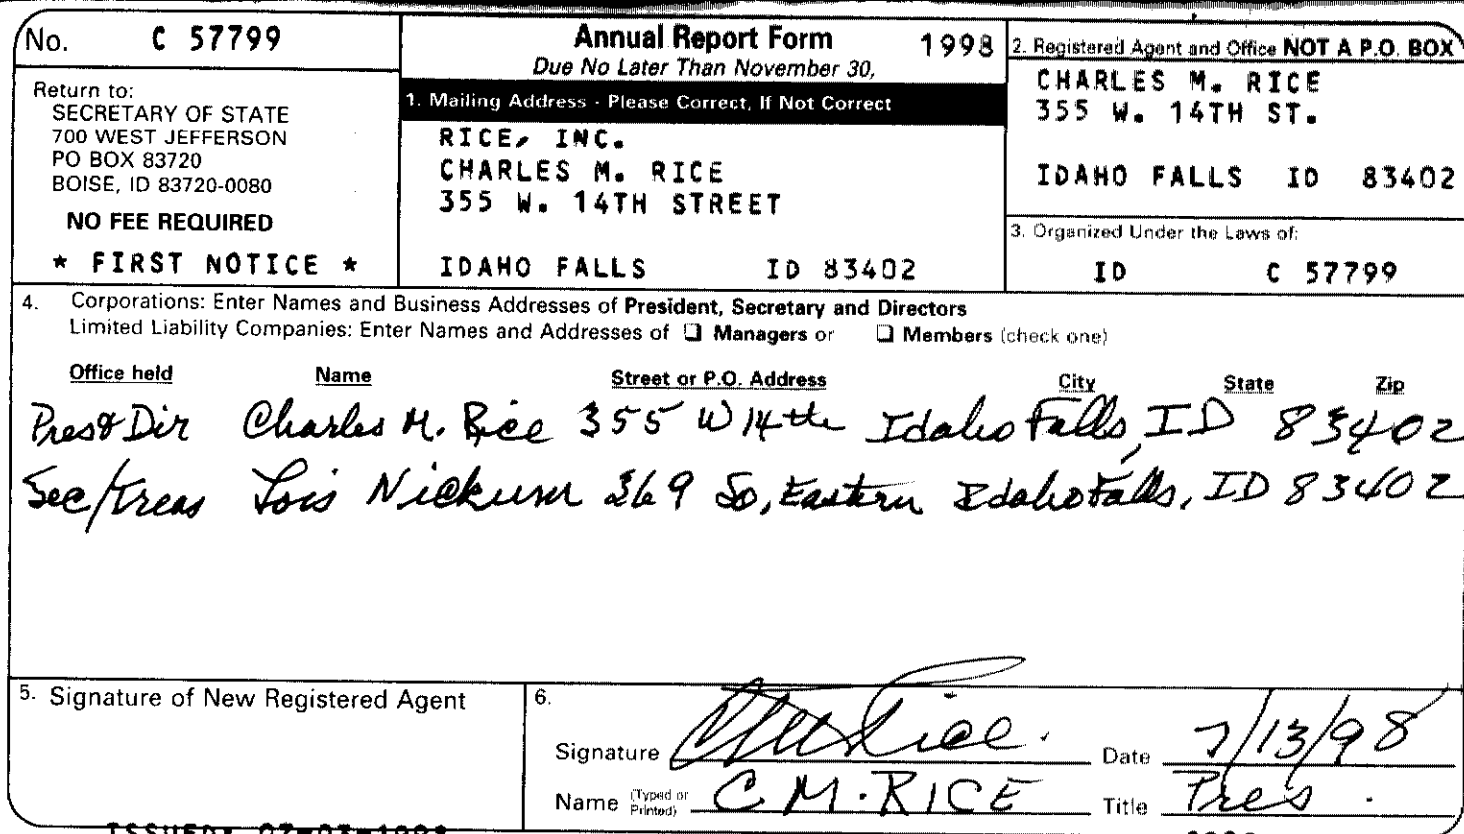 No. C 57799
Annual Report Form 1998
Due No Later Than November 30,
Return to:
SECRETARY OF STATE
700 WEST JEFFERSON
PO BOX 83720
BOISE, ID 83720-0080
NO FEE REQUIRED
* FIRST NOTICE *
1. Mailing Address - Please Correct, If Not Correct
RICE, INC.
CHARLES M. RICE
355 W. 14TH STREET
IDAHO FALLS ID 83402
2. Registered Agent and Office NOT A P.O. BOX
CHARLES M. RICE
355 W. 14TH ST.
IDAHO FALLS ID 83402
3. Organized Under the Laws of:
ID C 57799
4. Corporations: Enter Names and Business Addresses of President, Secretary and Directors
Limited Liability Companies: Enter Names and Addresses of ❑ Managers or ❑ Members (check one)
Office held Name Street or P.O. Address City State Zip
Pres & Dir Charles M. Rice 355 W 14th Idaho Falls, ID 83402
Sec/Treas Lois Nickum 369 So, Eastern Idaho Falls, ID 83402
5. Signature of New Registered Agent
6.
Signature CM Rice. Date 7/13/98
Name (Typed or Printed) C M. RICE Title Pres.
ISSUED: 07-03-1998